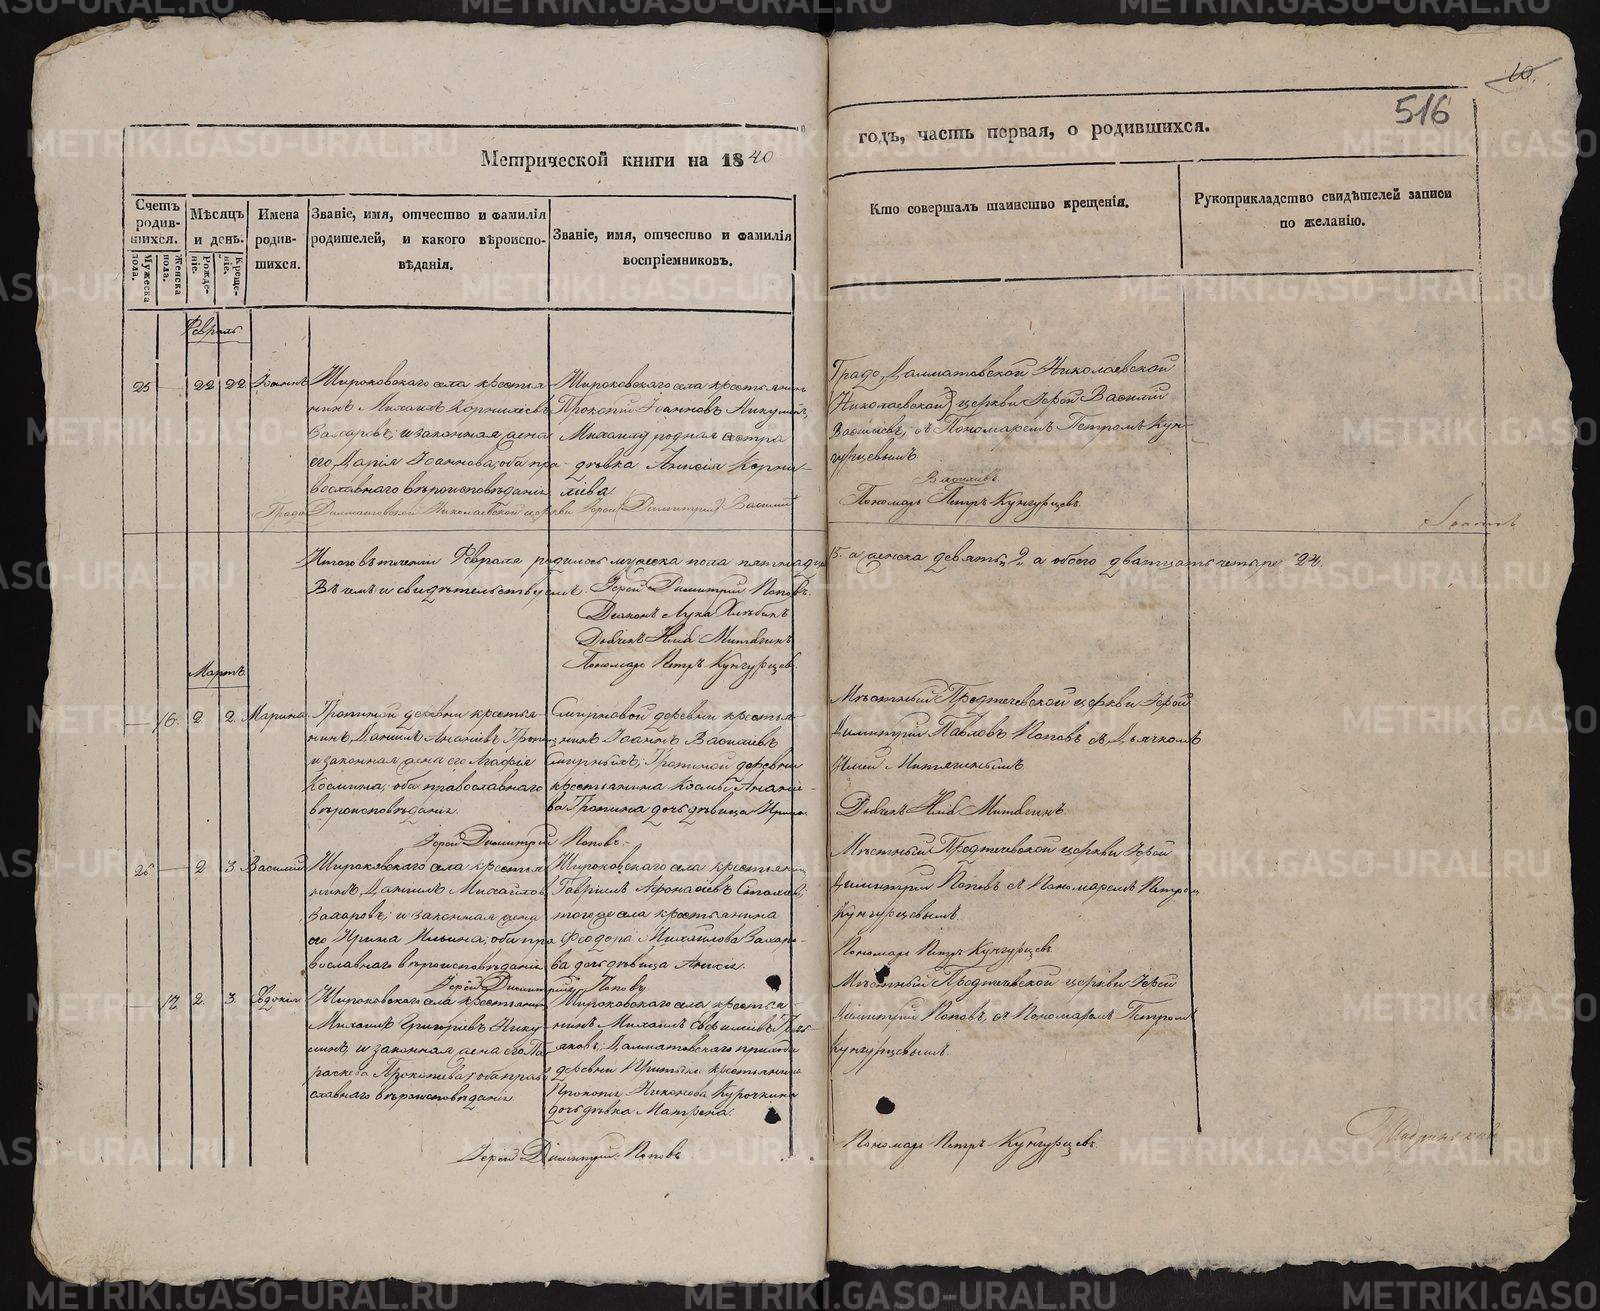 Метрической книги на 1840
годъ, часть первая, о родившихся.
10.
516
Счетъ родив-шихся.
Мужеска пола.
Женска пола.
Мѣсяцъ и день.
Рожде-ніе.
Креще-ніе.
Имена родив-шихся.
Званіе, имя, отчество и фамилія
родителей, и какого вѣроиспо-
вѣданія.
Званіе, имя, отчество и фамилія
воспріемниковъ.
Кто совершалъ таинство крещенія.
Рукоприкладство свидѣтелей записи
по желанію.
Февраль
25 — 22 22 Іоаннъ
Широковскаго села крестья-
нинъ Михаилъ Корниліевъ
Захаровъ; и законная жена
его Дарія Іоаннова; оба пра-
вославнаго вѣроисповѣданія
Широковскаго села крестьянинъ
Прокопій Іоанновъ Никулинъ,
Михаилу родная сестра
дѣвка Анисія Корни-
лiева.
Градо Далматовской Николаевской церкви Іерей Димитрій Василій
Градо Далматовской Николаевской
Николаевской церкви Іерей Василій
Василіевъ, съ Пономаремъ Петромъ Кун-
гурцевымъ
Василіевъ
Пономарь Петръ Кунгурцевъ
Итого въ теченіи Февраля родилось мужеска пола пятнадцать 15. а женска девять, 9. а обоего дватцать четыре 24.
Въ чемъ и свидѣтельствуемъ: Іерей Димитрій Поповъ.
Діаконъ Лука Хлѣбинъ
Дьячекъ Илія Митягинъ
Пономарь Петръ Кунгурцевъ
Мартъ
— 16. 2 2 Марина
Тропиной деревни крестья-
нинъ Даніилъ Ананіевъ Тропинъ
и законная жена его Агафія
Космина; оба православнаго
вѣроисповѣданія
Смирновой деревни крестья-
нинъ Іоаннъ Василіевъ
Смирныхъ; Тропиной деревни
крестьянина Космы Ананіе-
ва Тропина дочь дѣвица Ирина
Іерей Димитрій Поповъ
Мѣстный Предтечевской церкви Іерей
Димитрій Павловъ Поповъ съ Дьячкомъ
Иліей Митягинымъ
Дьячекъ Илія Митягинъ
26 — 2 3 Василій
Широковскаго села крестья-
нинъ Даніилъ Михайловъ
Захаровъ; и законная жена
его Ирина Ильина; оба пра-
вославнаго вѣроисповѣданія
Широковскаго села крестьянинъ
Гавріилъ Афонасіевъ
тогоже села крестьянина
Феодора Михайлова Захаро-
ва дочь дѣвица Анисія.
Іерей Димитрій Поповъ
Мѣстный Предтечевской церкви Іерей
Димитрій Поповъ съ Пономаремъ Петромъ
Кунгурцевымъ.
Пономарь Петръ Кунгурцевъ
— 17. 2. 3. Евдокія
Широковскаго села крестьянинъ
Михаилъ Григоріевъ Нику-
линъ, и законная жена его Па-
раскева Прокопіева; оба право-
славнаго вѣроисповѣданія
Широковскаго села крестья-
нинъ Михаилъ
Далматовскаго прихода
деревни крестьянина
Прокопія Никонова Курочкина
дочь дѣвка Матрена.
Іерей Димитрій Поповъ
Мѣстный Предтечевской церкви Іерей
Димитрій Поповъ, съ Пономаремъ Петромъ
Кунгурцевымъ.
Пономарь Петръ Кунгурцевъ
METRIKI.GASO-URAL.RU